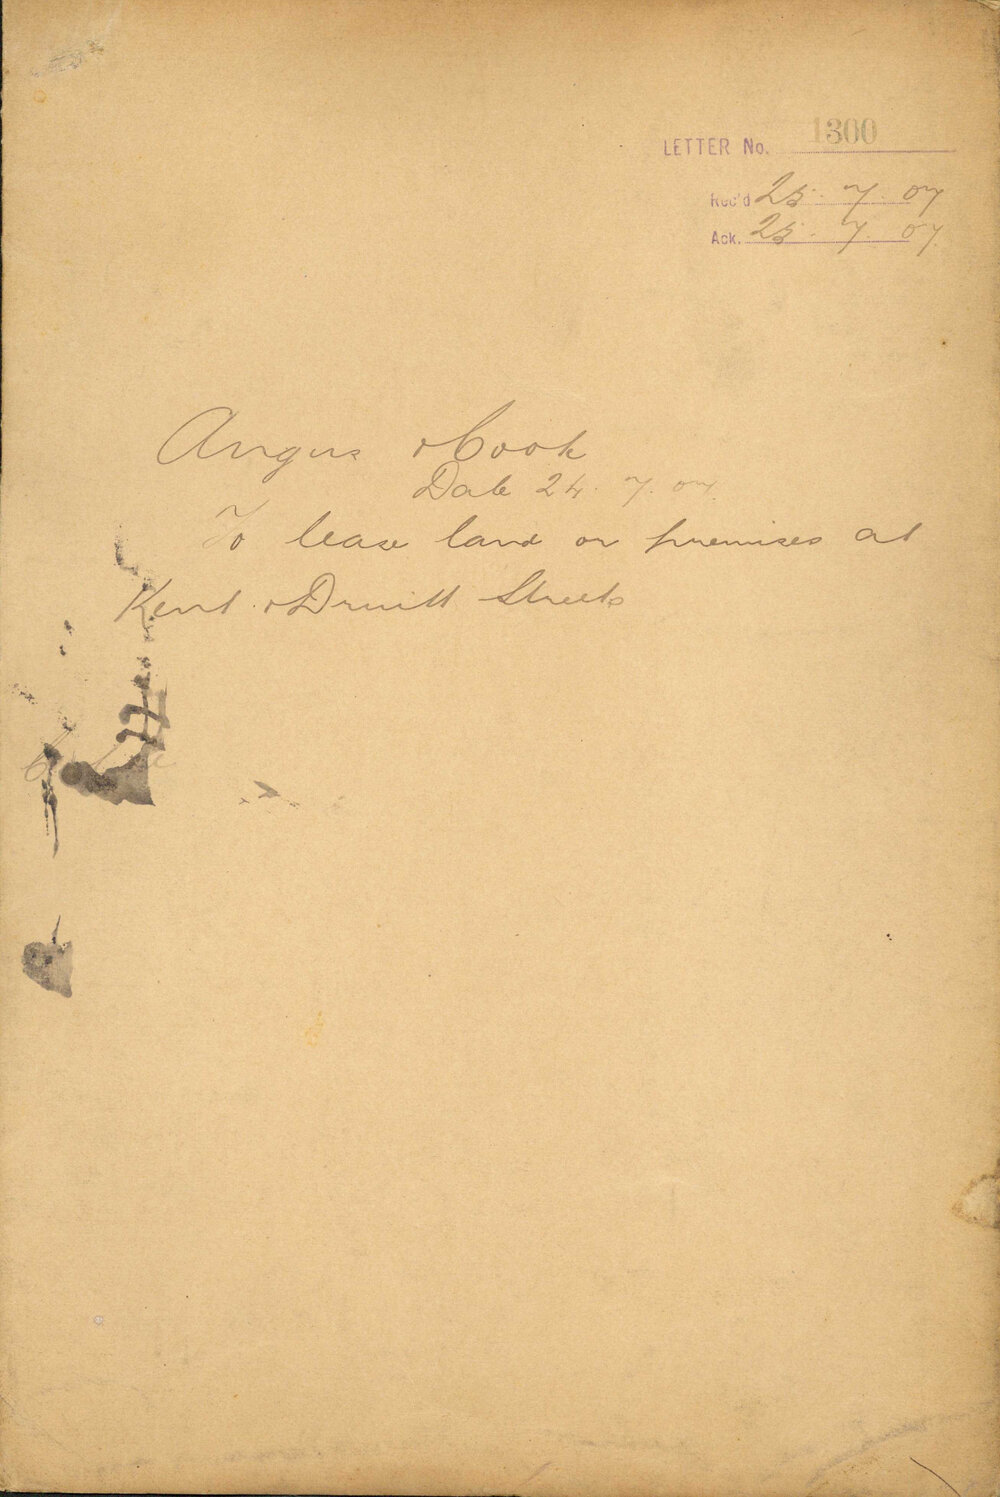 LETTER No. 1300
Rec'd 25. 7. 07
Ack. 25. 7. 07
Angus & Cook
Date 24. 7. 07
To lease land or premises at
Kent & Druitt Streets